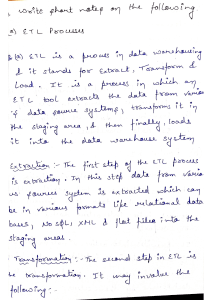 , Write short notes on the following
a) ETL Processes
(a) ETL is a process in data warehousing
& it stands for Extract, Transform &
Load. It is a process in which an
ETL tool extracts the data from vario
data source systems, transforms it in
the staging area, & then finally, loads
it into the data warehouse system
Extraction :- The first step of the ETL process
is extraction. In this step data from vario
us sources system is extracted which can
be in various formats like relational data
bases, NoSQL, XML & flat files into the
staging areas.
Transformation :- The second step in ETL is
transformation. It may involve the
following :-